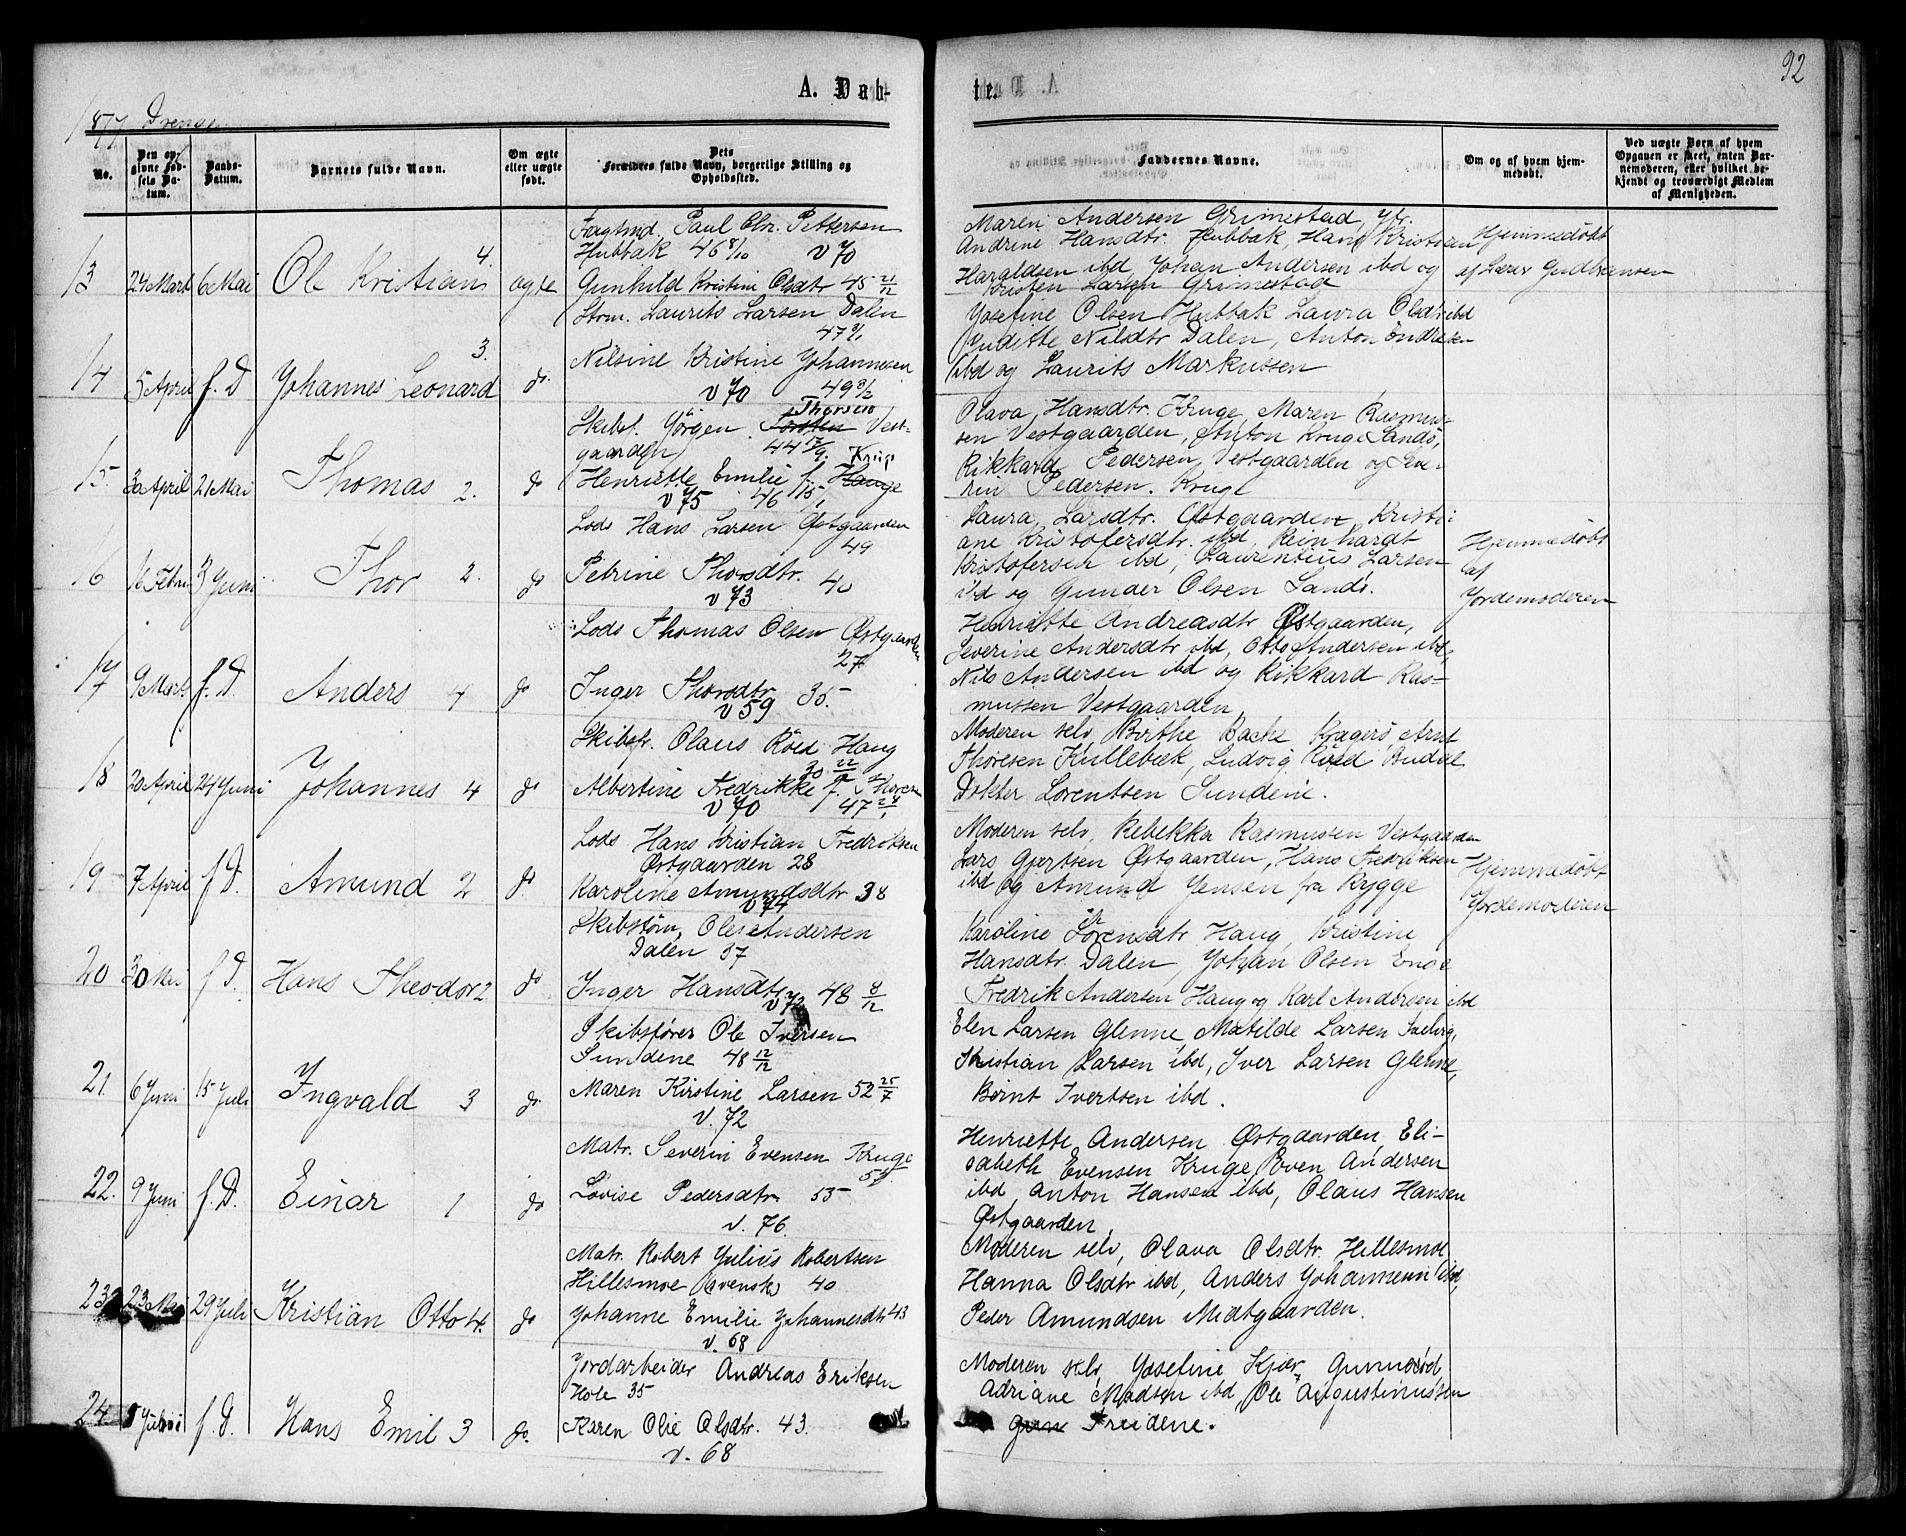 92
A. Dab-
te.
1877 Drenge
No.
Den op-
givne Fød-
sels Da-
tum.
Daabs-
Datum.
Barnets fulde Navn.
Om ægte
eller uægte
født.
Dets
Forældres fulde Navn, borgerlige Stilling og
Opholdssted.
Faddernes Navne.
Om og af hvem hjem-
medøbt.
Ved uægte Børn af hvem
Opgaven er skeet, enten Bar-
nemoderen, eller hvilket be-
kjendt og troværdigt Medlem
af Menigheden.
13 24 Mart 6 Mai Ole Kristian 4. ægte
Fagtmd. Paul Chr. Pettersen
Hubbak 46 8/10 v 70
Gunhild Kristine Olsdtr 45 21/12
Maren Andersen Grimestad, Ytr.
Andrine Hansdtr. Hubbak, Hans Kristian
Haraldsen ibd Johan Andersen ibd og
Kristen Larsen Grimestad
Hjemmedøbt
af Lærer Gudbransen
14 5 April f. D Johannes Leonard 3. do.
Strm. Laurits Larsen Dalen
47 9/1
Nilsine Kristine Johannesen
v 70 49 8/2
Josefine Olsen Hubbak Laura Olsdtr ibd
Nilsdtr Dalen, Anton Endresen
ibd og Laurits Markussen
15 30 April 21 Mai Thomas 2. do
Skibst. Jörgen Torsten Thorsen Vest-
gaarden 44 17/9.
Henriette Emilie f. Hauge Kruge
v 75 46 15/1
Olava Hansdtr. Kruge, Maren Rasmus-
sen Vestgaarden, Anton Kruge Sandö,
Rikkard Pedersen Vestgaarden og Sen-
rin Pedersen. Kruge
16 16 Febru 3 Juni Thor 2. do
Lods Hans Larsen Østgaarden
49
Petrine Thorsdtr. 40
v 73
Laura Larsdtr. Østgaarden Kristi-
ane Kristofersdtr. ibd, Reinhardt
Kristofersen ibd, Laurentius Larsen
ibd og Gunder Olsen Sandö.
Hjemmedøbt
af
Jordemoderen
17 9 Marts f. D. Anders 4 do
Lods Thomas Olsen Østgaarden
27
Inger Thorsdtr. 35
v 59
Henriette Andreasdtr Østgaarden,
Severine Andersdtr ibd, Otto Andersen ibd,
Nils Andersen ibd og Rikkard Ras-
mussen Vestgaarden
18 20 April 24 Juni Johannes 4 do
Skibsfr. Olaus Röed Haug
30 22/9
Albertine Fredrikke f. Thoresen
v 70 47
Moderen selv Birthe Backe Kragerö Arnt
Thoresen Kullebæk, Ludvig Röed Budal
Dokter Lorentsen Sundene.
19 7 April f D. Amund 2 do.
Lods Hans Kristian Fredriksen
Østgaarden 28
Karoline Amundsdtr 38
v 74
Moderen selv, Rebekka Rasmussen Vestgaarden
Lars Gjertsen Østgaarden, Hans Fredriksen
ibd og Amund Jensen fra Rygge
Hjemmedøbt
Jordemoderen
20 30 Mai f D. Hans Theodor 2 do
Skibstöm, Ole Andersen
Dalen 37
Inger Hansdtr 48 8/12
v 72
Karoline Sorensdtr Haug, Kristine
Hansdtr. Dalen, Johan Olsen Enge
Fredrik Andersen Haug og Karl Andersen ibd
21. 6 Juni 15 Juli Ingvald 3 do.
Skibsfører Ole Iversen
Sundene 48 12/12
Maren Kirstine Larsen 52 25/7
v. 72
Elen Larsen Glenne, Matilde Larsen
Kristian Larsen ibd, Iver Larsen Glenne,
Bernt Ivertsen ibd.
22. 9 Juni f. D. Einar 1 do
Matr. Severin Evensen Kruge
Lovise Pedersdtr. 55
v. 76.
Henriette Andersen Østgaarden, Eli-
sabeth Evensen Kruge Even Andersen
ibd Anton Hansen ibd, Olaus Hansen
Østgaarden,
23 23 Mai 29 Juli Kristian Otto 4. do
Matr. Robert Julius Robertsen
Hillesmoe (svensk) 40
Johanne Emilie Johannesdtr 43
v. 68
Moderen selv, Olava Olsdtr. Hillesmoe
Hanna Olsdtr ibd, Anders Johannesen ibd,
Peder Amundsen Midtgaarden.
24 f. D. Hans Emil 3 do.
Jordarbeider Andreas Eriksen
Hole 35
Karen Olie Olsdtr. 43.
v. 68
Moderen selv, Josefine Kjær, Gunnerød,
Adriane Madsen ibd, Ole Augustinussen
Treidene.